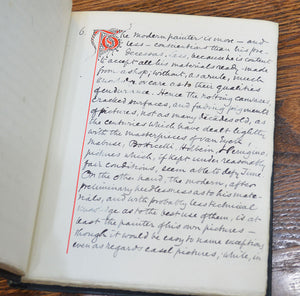 6.
The modern painter is more — and
less — conscientious than his pre
decessors; less, because he is content
to accept all his materials ready made
from a shop, without, as a rule, much
thought or care as to their qualities
of endurance. Hence the rotting canvases,
cracked surfaces, and fading pigments
of pictures, not as many decades old, as
the centuries which have dealt lightly
with the masterpieces of Van Eyck,
Mabuse, Botticelli, Holbein & Memling
pictures which, if kept under reasonably
fair conditions, seem able to defy Time.
On the other hand, the modern, after
preliminary heedlessness as to his mate-
rials, and with probably less technical
knowledge as to the best use of them, is at
least the painter of his own pictures —
though it would be easy to name exceptions,
even as regards easel pictures; while, in